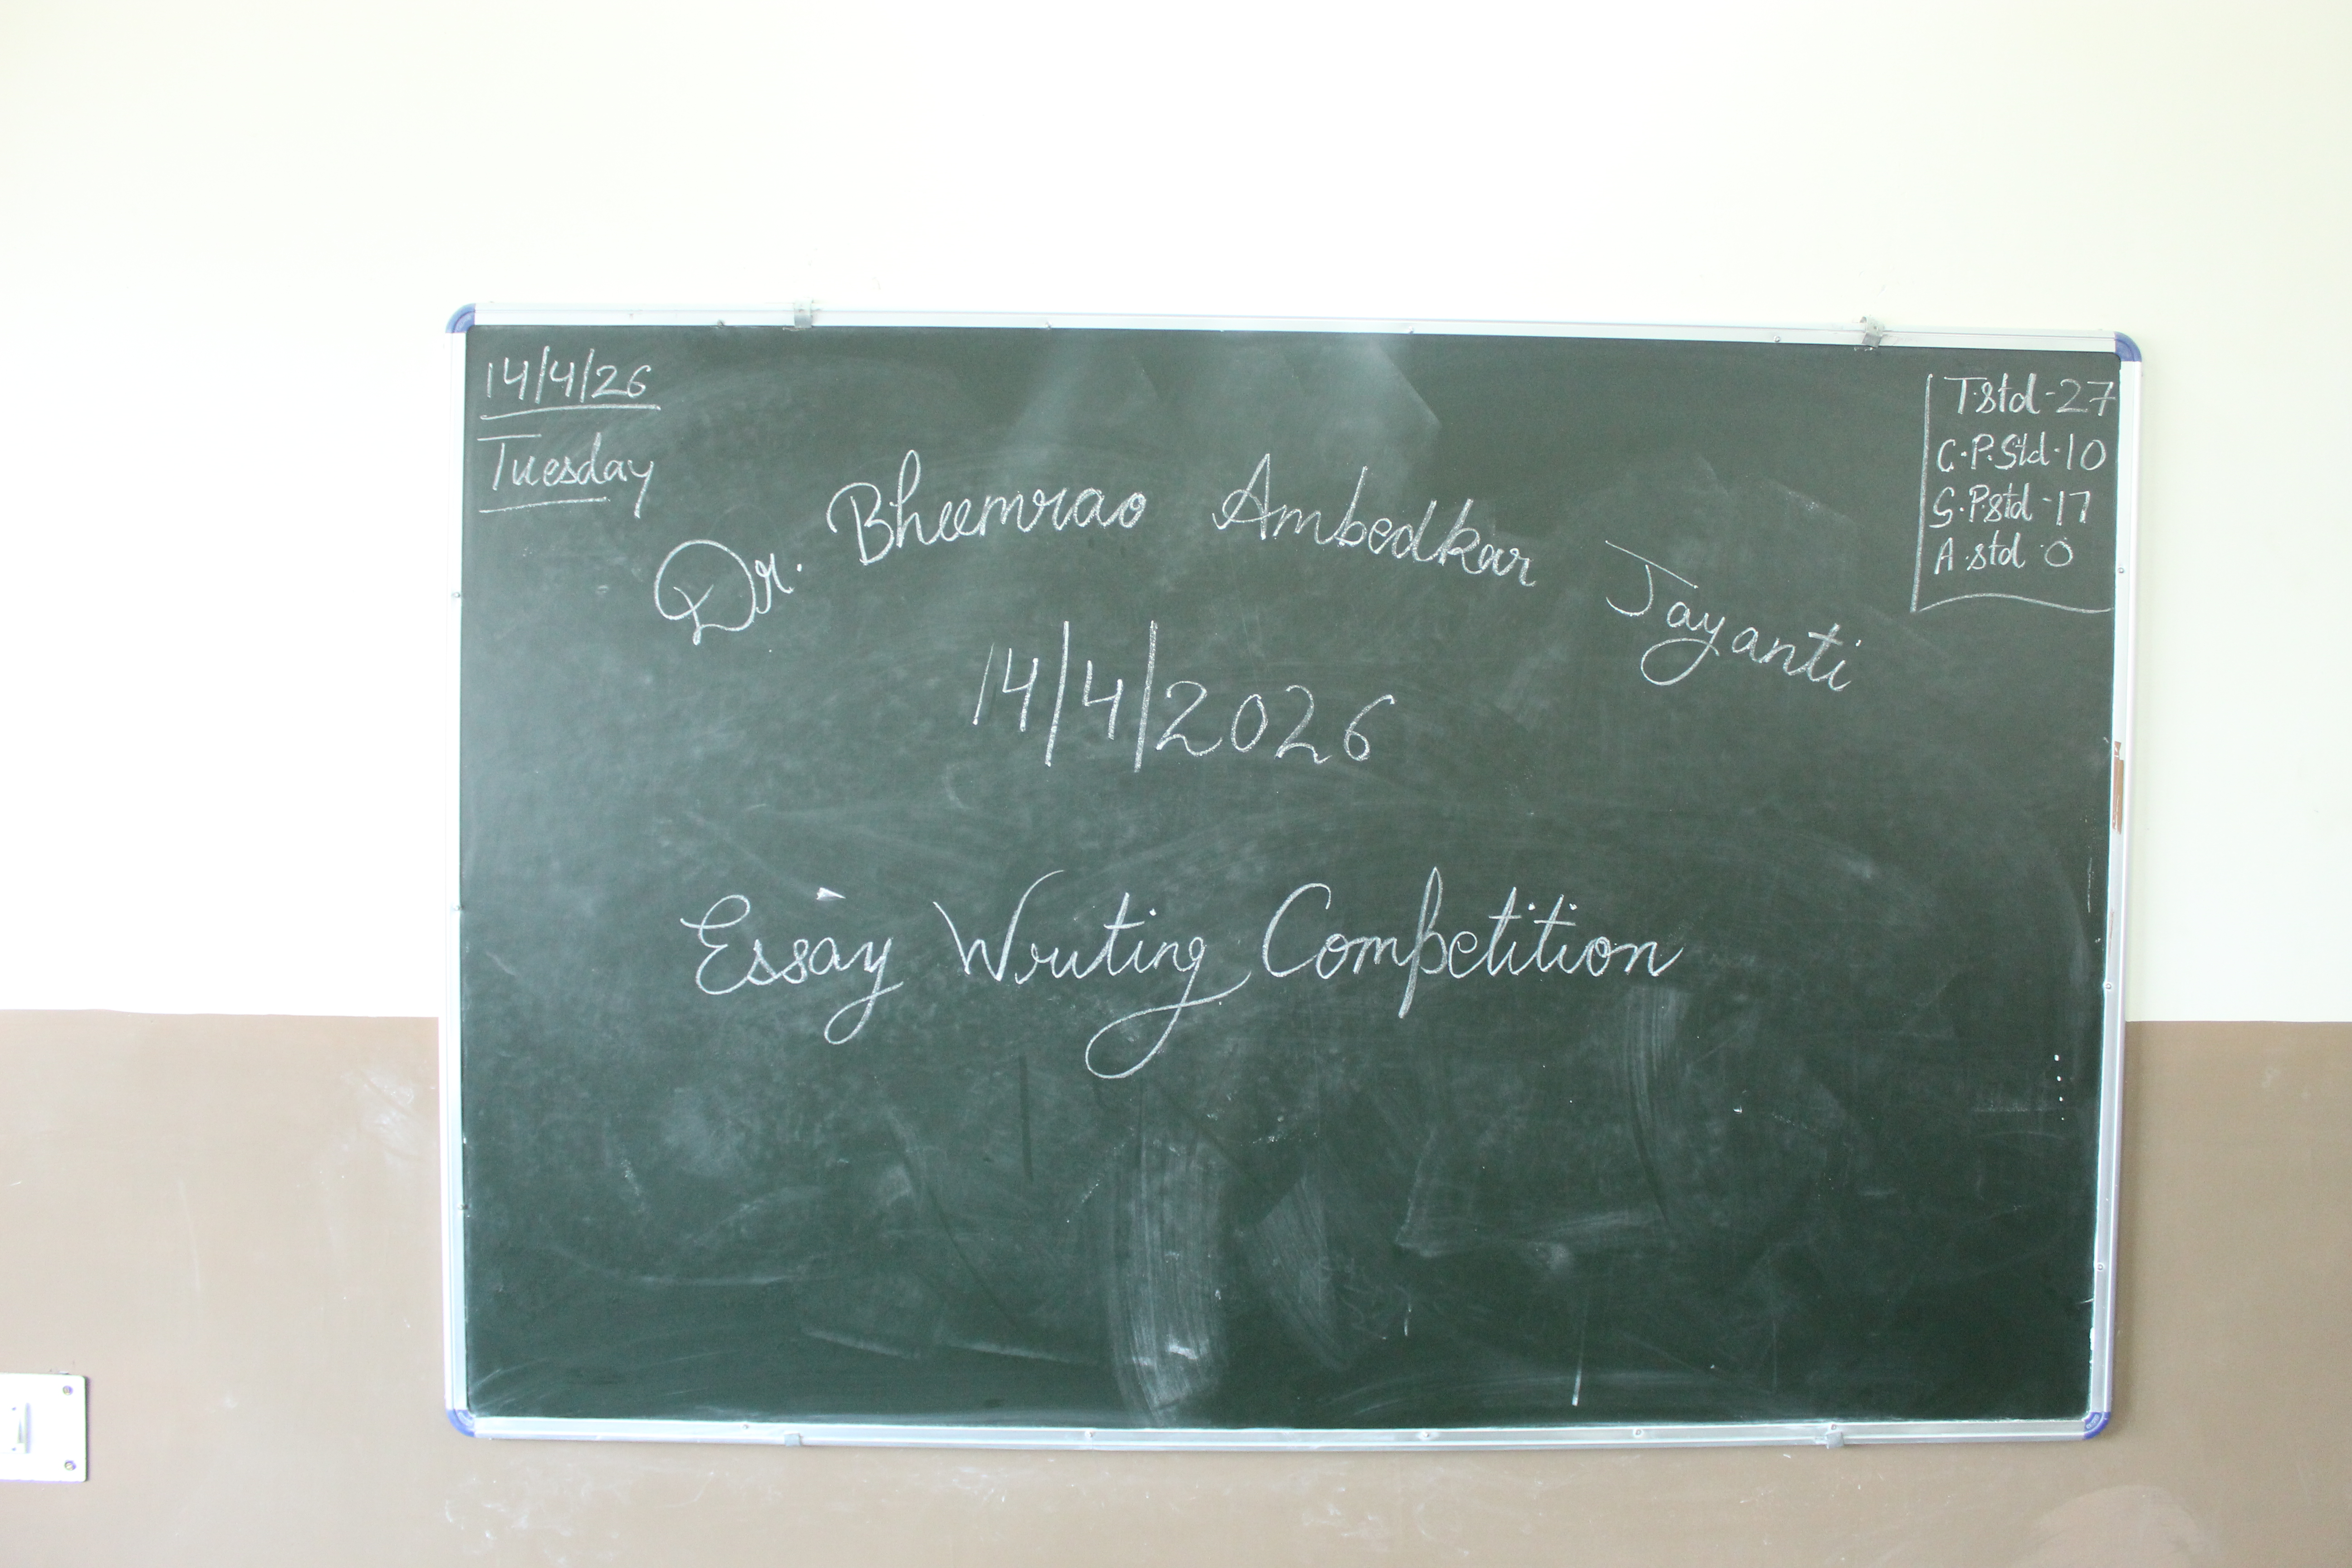 14/4/26
Tuesday
T.std-27
C.P.Std.10
S.P.std-17
A.std.0
Dr. Bheemrao Ambedkar Jayanti
14/4/2026
Essay Writing Competition